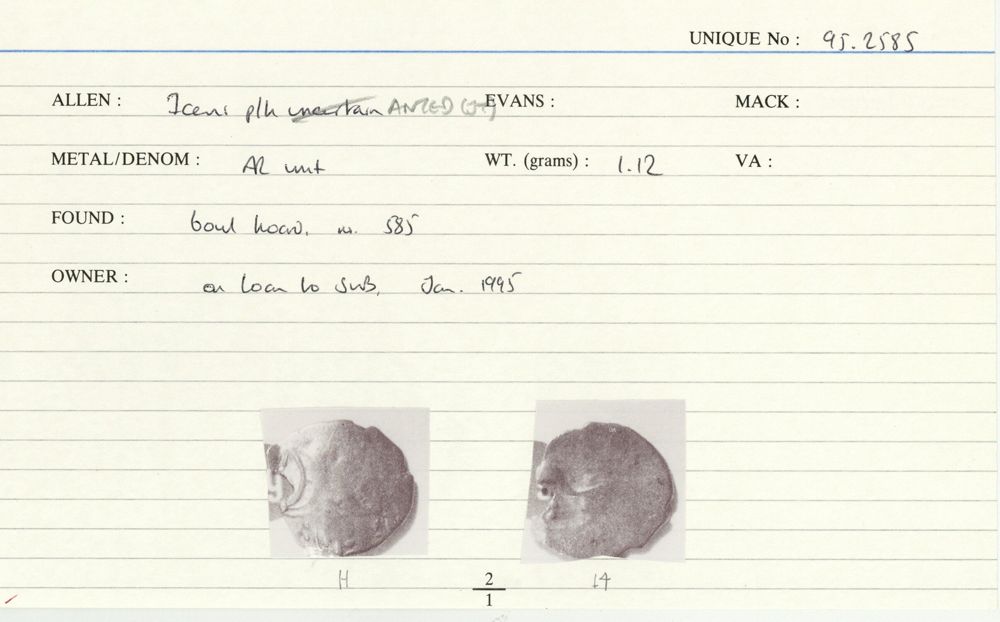 UNIQUE No : 95.2585
ALLEN : Iceni plh uncertain ANTED (JT) EVANS : MACK :
METAL/DENOM : AR unit WT. (grams) : 1.12 VA :
FOUND : bowl hoard. no. 585
OWNER : on loan to SVB, Jan. 1995
H 2/1 14